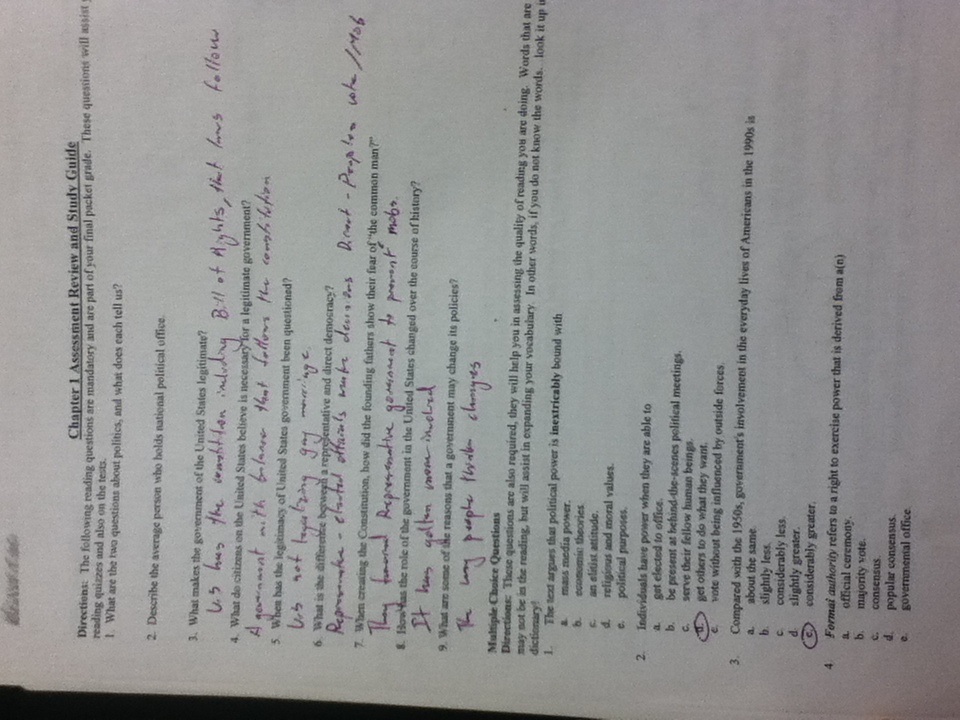 Chapter 1 Assessment Review and Study Guide
Directions: The following reading questions are mandatory and are part of your final packet grade. These questions will assist
reading quizzes and also on the tests.
1. What are the two questions about politics, and what does each tell us?
2. Describe the average person who holds national political office.
3. What makes the government of the United States legitimate?
U.S has the constitution including Bill of Rights, that laws follow
4. What do citizens on the United States believe is necessary for a legitimate government?
A government with balance that follows the constitution
5. When has the legitimacy of United States government been questioned?
U.S not legalizing gay marriage.
6. What is the difference between a representative and direct democracy?
elected officials make decisions Direct - People vote / Mob
7. When creating the Constitution, how did the founding fathers show their fear of "the common man?"
They government to prevent mobs.
8. How has the role of the government in the United States changed over the course of history?
It has gotten more involved
9. What are some of the reasons that a government may change its policies?
The way people changes
Multiple Choice Questions
Directions: These questions are also required, they will help you in assessing the quality of reading you are doing. Words that are
may not be in the reading, but will assist in expanding your vocabulary. In other words, if you do not know the words... look it up
dictionary!
1. The text argues that political power is inextricably bound with
a. mass media power.
b. economic theories.
c. an elitist attitude.
d. religious and moral values.
e. political purposes.
2. Individuals have power when they are able to
a. get elected to office.
b. be present at behind-the-scenes political meetings.
c. serve their fellow human beings.
d. get others to do what they want.
e. vote without being influenced by outside forces.
3. Compared with the 1950s, government's involvement in the everyday lives of Americans in the 1990s is
a. about the same.
b. slightly less.
c. considerably less.
d. slightly greater.
e. considerably greater.
4. Formal authority refers to a right to exercise power that is derived from a(n)
a. official ceremony.
b. majority vote.
c. consensus.
d. popular consensus.
e. governmental office.